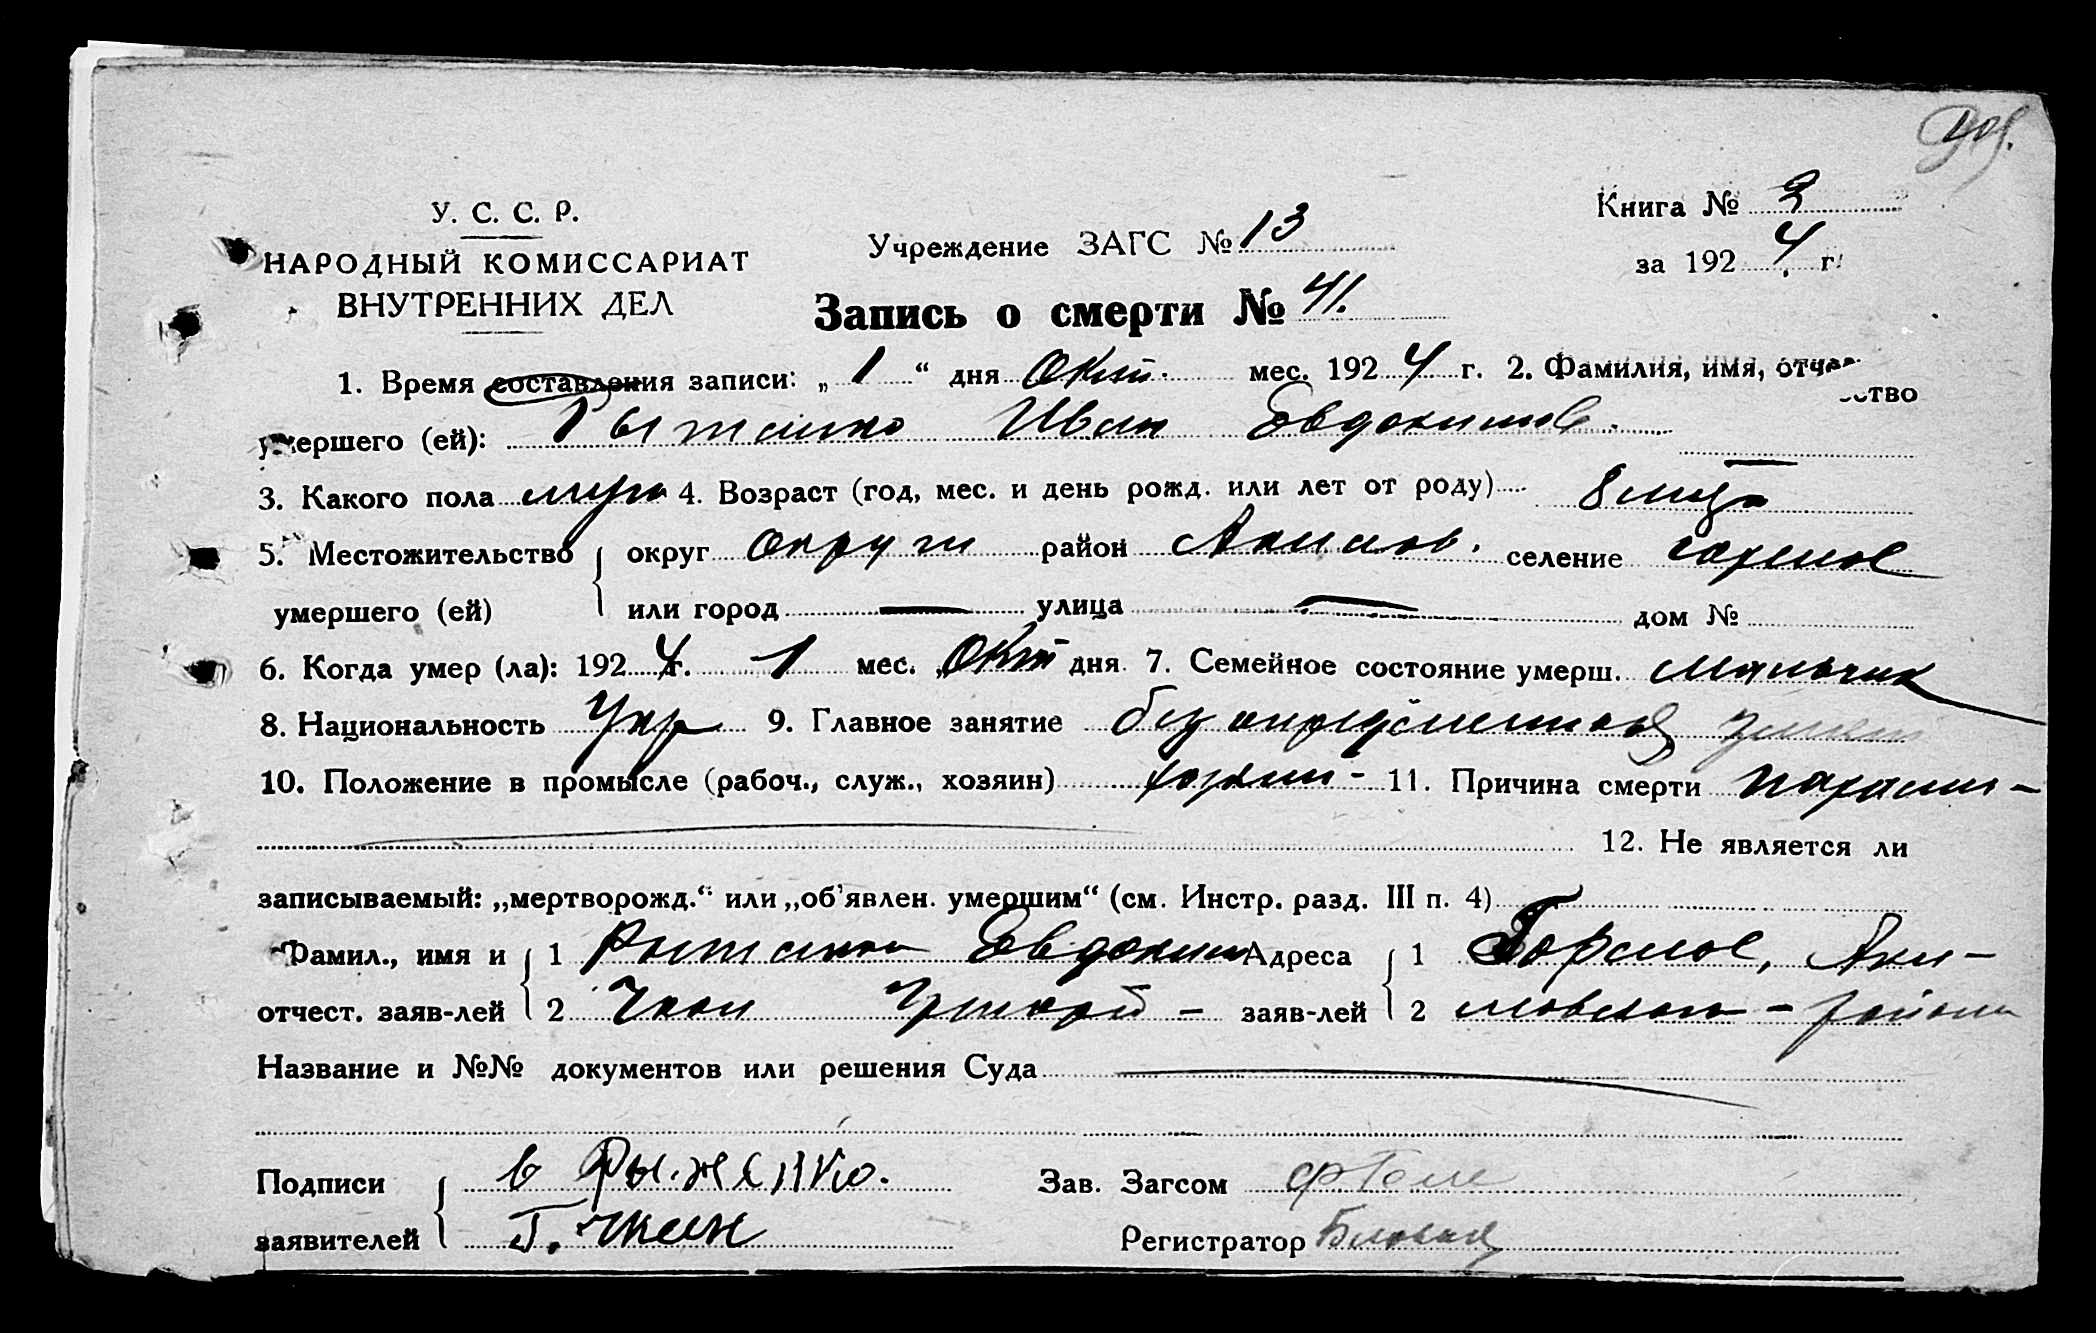 У. С. С. Р.
НАРОДНЫЙ КОМИССАРИАТ
ВНУТРЕННИХ ДЕЛ
Учреждение ЗАГС № 13
Книга № 3
за 1924 г.
Запись о смерти № 41.
1. Время составления записи: „1“ дня Окт. мес. 1924 г. 2. Фамилия, имя, отчество
умершего (ей): Иван Евдокимов.
3. Какого пола муж 4. Возраст (год, мес. и день рожд. или лет от роду) 8
5. Местожительство умершего (ей) { округ район Акимов. селение Горелое
или город — улица — дом №
6. Когда умер (ла): 1924 г. 1 мес. „Окт дня 7. Семейное состояние умерш. мальчик
8. Национальность Укр 9. Главное занятие
10. Положение в промысле (рабоч., служ., хозяин) хозяин - 11. Причина смерти
12. Не является ли
записываемый: „мертворожд.“ или „об'явлен. умершим“ (см. Инстр. разд. III п. 4)
Фамил., имя и отчест. заяв-лей { 1 Евдоким Адреса заяв-лей { 1 Горелое, Аки-
2 Чкан Григорий - 2 мовского - района
Название и №№ документов или решения Суда
Подписи заявителей { Рыженко.
Г. Чкан
Зав. Загсом
Регистратор